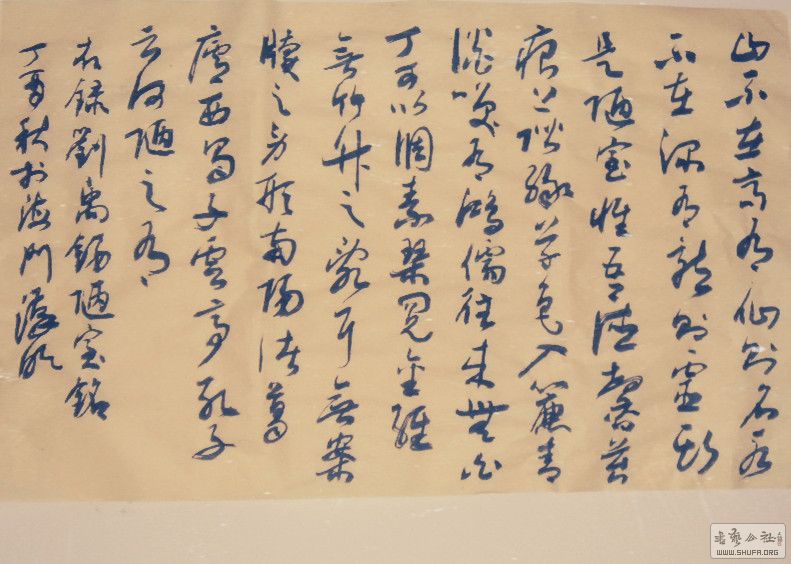 山不在高有仙則名水
不在深有龍則靈斯
是陋室惟吾德馨苔
痕上階綠草色入簾青
談笑有鴻儒往來無白
丁可以調素琴閱金經
無絲竹之亂耳無案
牘之勞形南陽諸葛
廬西蜀子雲亭孔子
云何陋之有
右録劉禹錫陋室銘
丁酉秋於海門
书艺公社
WWW.SHUFA.ORG